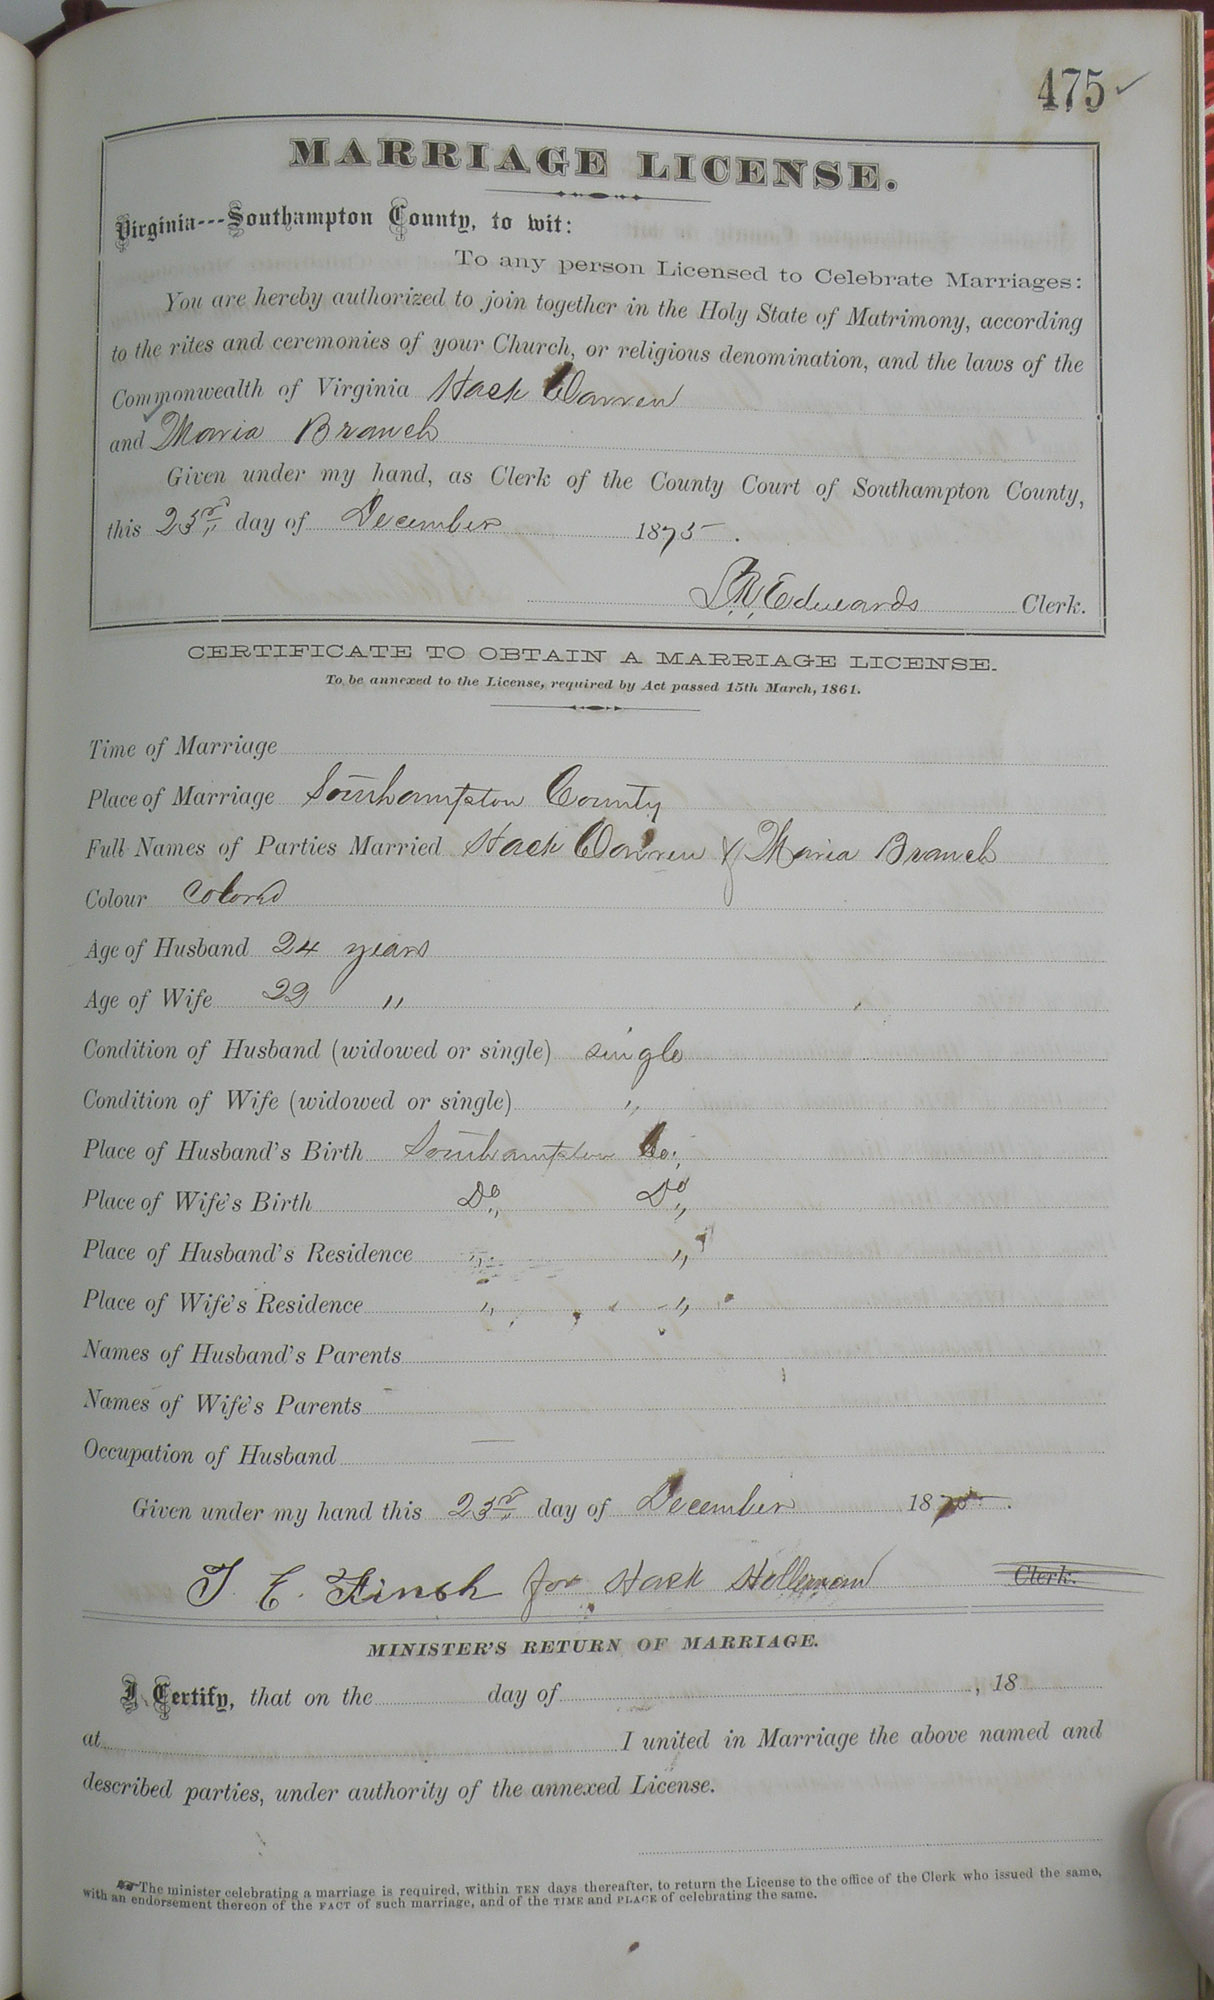 475
MARRIAGE LICENSE.
Virginia---Southampton County, to wit:
To any person Licensed to Celebrate Marriages:
You are hereby authorized to join together in the Holy State of Matrimony, according
to the rites and ceremonies of your Church, or religious denomination, and the laws of the
Commonwealth of Virginia Hack Warren
and Maria Branch
Given under my hand, as Clerk of the County Court of Southampton County,
this 23rd day of December 1875.
Edwards Clerk.
CERTIFICATE TO OBTAIN A MARRIAGE LICENSE.
To be annexed to the License, required by Act passed 15th March, 1861.
Time of Marriage
Place of Marriage Southampton County
Full Names of Parties Married Hack Warren & Maria Branch
Colour Colored
Age of Husband 24 years
Age of Wife 22 "
Condition of Husband (widowed or single) single
Condition of Wife (widowed or single) "
Place of Husband's Birth Southampton Co.
Place of Wife's Birth Do Do
Place of Husband's Residence " "
Place of Wife's Residence " "
Names of Husband's Parents
Names of Wife's Parents
Occupation of Husband —
Given under my hand this 23rd day of December 1875.
T. E. Finch for Hack Clerk.
MINISTER'S RETURN OF MARRIAGE.
I Certify, that on the day of , 18
at I united in Marriage the above named and
described parties, under authority of the annexed License.
The minister celebrating a marriage is required, within TEN days thereafter, to return the License to the office of the Clerk who issued the same,
with an endorsement thereon of the FACT of such marriage, and of the TIME and PLACE of celebrating the same.